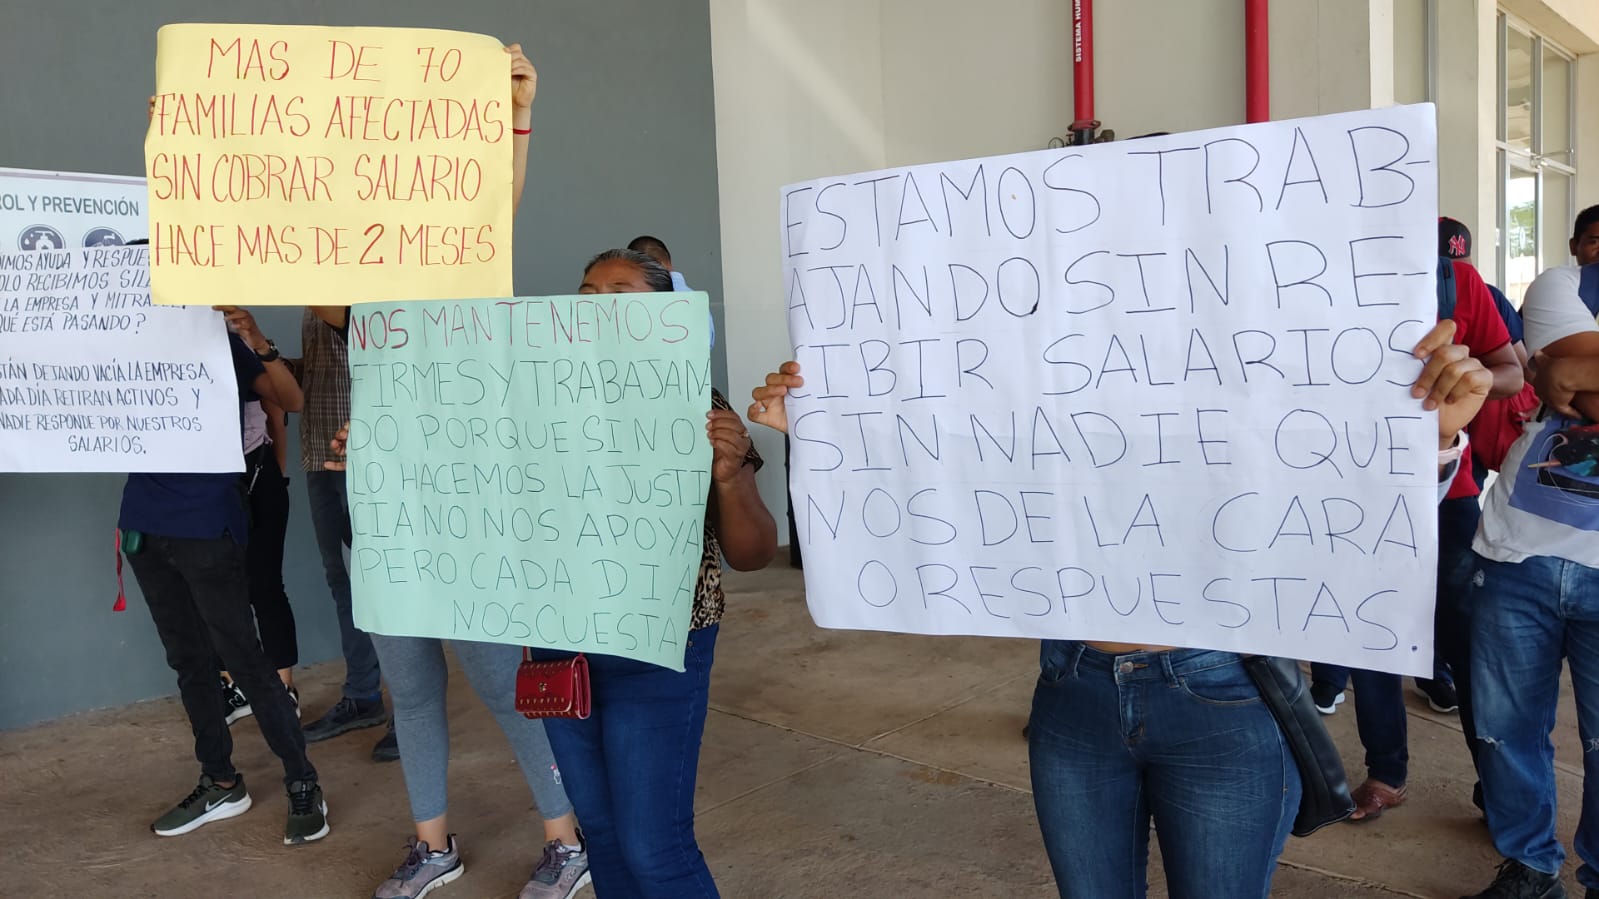 MAS DE 70
FAMILIAS AFECTADAS
SIN COBRAR SALARIO
HACE MAS DE 2 MESES
ROL Y PREVENCIÓN
AYUDA Y
RECIBIMOS
LA EMPRESA Y
ESTÁ PASANDO?
DEJANDO VACÍA LA EMPRESA,
DÍA RETIRAN ACTIVOS Y
NADIE RESPONDE POR NUESTROS
SALARIOS.
NOS MANTENEMOS
FIRMES Y TRABAJAN-
DO PORQUE SI NO
LO HACEMOS LA JUSTI
CIA NO NOS APOYA
PERO CADA DIA
NOS CUESTA
ESTAMOS TRAB-
AJANDO SIN RE-
CIBIR SALARIOS
SIN NADIE QUE
NOS DE LA CARA
O RESPUESTAS.
SISTEMA HUM
NY